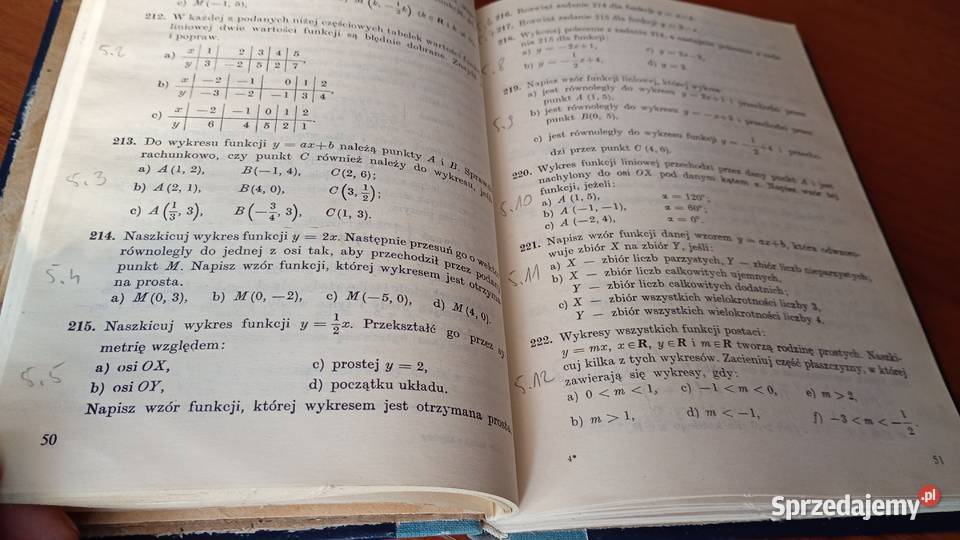 c) M(−1, 5),
212. W każdej z podanych niżej częściowych tabelek wartości funkcji
liniowej dwie wartości funkcji są błędnie dobrane. Znajdź
i popraw.
5.2
a) x | 1 | 2 | 3 | 4 | 5
y | 3 | −2 | 5 | 2 | 7 ,
b) x | −2 | −1 | 0 | 1 | 2
y | −3 | −2 | −1 | 3 | 4 ,
c) x | −2 | −1 | 0 | 1 | 2
y | 6 | 4 | 5 | 2 | 1 .
213. Do wykresu funkcji y = ax+b należą punkty A i B. Sprawdź
rachunkowo, czy punkt C również należy do wykresu, jeśli
5.3
a) A(1, 2), B(−1, 4), C(2, 6);
b) A(2, 1), B(4, 0), C(3, 1/2);
c) A(1/3, 3), B(−3/4, 3), C(1, 3).
214. Naszkicuj wykres funkcji y = 2x. Następnie przesuń go o wektor
równoległy do jednej z osi tak, aby przechodził przez podany
5.4
punkt M. Napisz wzór funkcji, której wykresem jest otrzyma
na prosta.
a) M(0, 3), b) M(0, −2), c) M(−5, 0), d) M(4, 0).
215. Naszkicuj wykres funkcji y = 1/2 x. Przekształć go przez sy
metrię względem:
5.5
a) osi OX, c) prostej y = 2,
b) osi OY, d) początku układu.
Napisz wzór funkcji, której wykresem jest otrzymana prosta.
50
216. Rozwiąż zadanie 214 dla funkcji
217. Rozwiąż zadanie 215 dla funkcji
218. Wykonaj polecenie z zadania 214, a następnie polecenie z zada
nia 215 dla funkcji:
a) y = −2x+1,
b) y = −1/2 x+4,
219. Napisz wzór funkcji liniowej, której wykres
a) jest równoległy do wykresu y = 2x+1 i przechodzi przez
punkt A (1, 5),
5.9
b) jest równoległy do wykresu y = −x+2 i przechodzi przez
punkt B(0, 5),
c) jest równoległy do wykresu funkcji y = −1/2 x+4 i przecho
dzi przez punkt C (4, 6).
220. Wykres funkcji liniowej przechodzi przez dany punkt A i jest
nachylony do osi OX pod danym kątem α. Napisz wzór tej
funkcji, jeżeli:
5.10
a) A (1, 5), α = 120°;
b) A (−1, −1), α = 60°;
c) A (−2, 4), α = 0°.
221. Napisz wzór funkcji danej wzorem y = ax+b, która odwzoro
wuje zbiór X na zbiór Y, jeśli:
5.11
a) X — zbiór liczb parzystych, Y — zbiór liczb nieparzystych;
b) X — zbiór liczb całkowitych ujemnych,
Y — zbiór liczb całkowitych dodatnich;
c) X — zbiór wszystkich wielokrotności liczby 3,
Y — zbiór wszystkich wielokrotności liczby 4.
222. Wykresy wszystkich funkcji postaci:
y = mx, x∈R, y∈R i m∈R tworzą rodzinę prostych. Naszki
cuj kilka z tych wykresów. Zacieniuj część płaszczyzny, w której
5.12
zawierają się wykresy, gdy:
a) 0 < m < 1, c) −1 < m < 0, e) m > 2,
b) m > 1, d) m < −1, f) −3 < m < −1/2.
4*
51
Sprzedajemy.pl